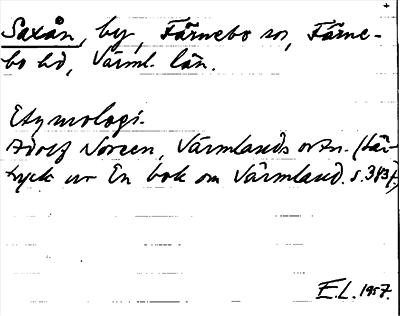 Saxån, by, Färnebo sn, Färne-
bo hd, Värml. län.
Etymologi.
Adolf Noreen, Värmlands ortn. (Sär-
tryck ur En bok om Värmland. s. 383f.).
E.L. 1957.